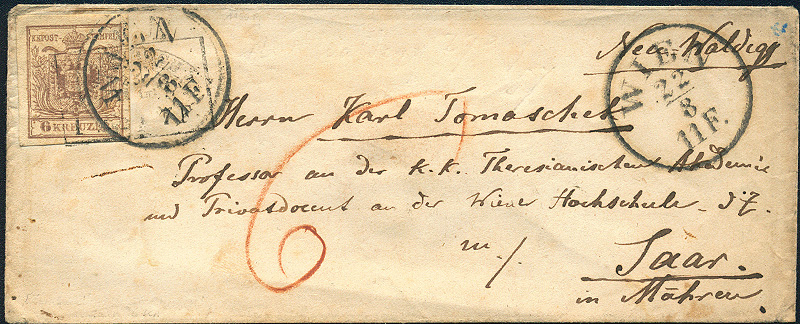 KKPOST-STEMPEL
6 KREUZER
WIEN
22/8
11F.
WIEN
22/8
11F.
Herrn Karl Tomaschek
Professor an der k.k. Theresianischen Akademie
und Privatdocent an der Wiener Hochschule
m/.
6
Saar.
in Mähren